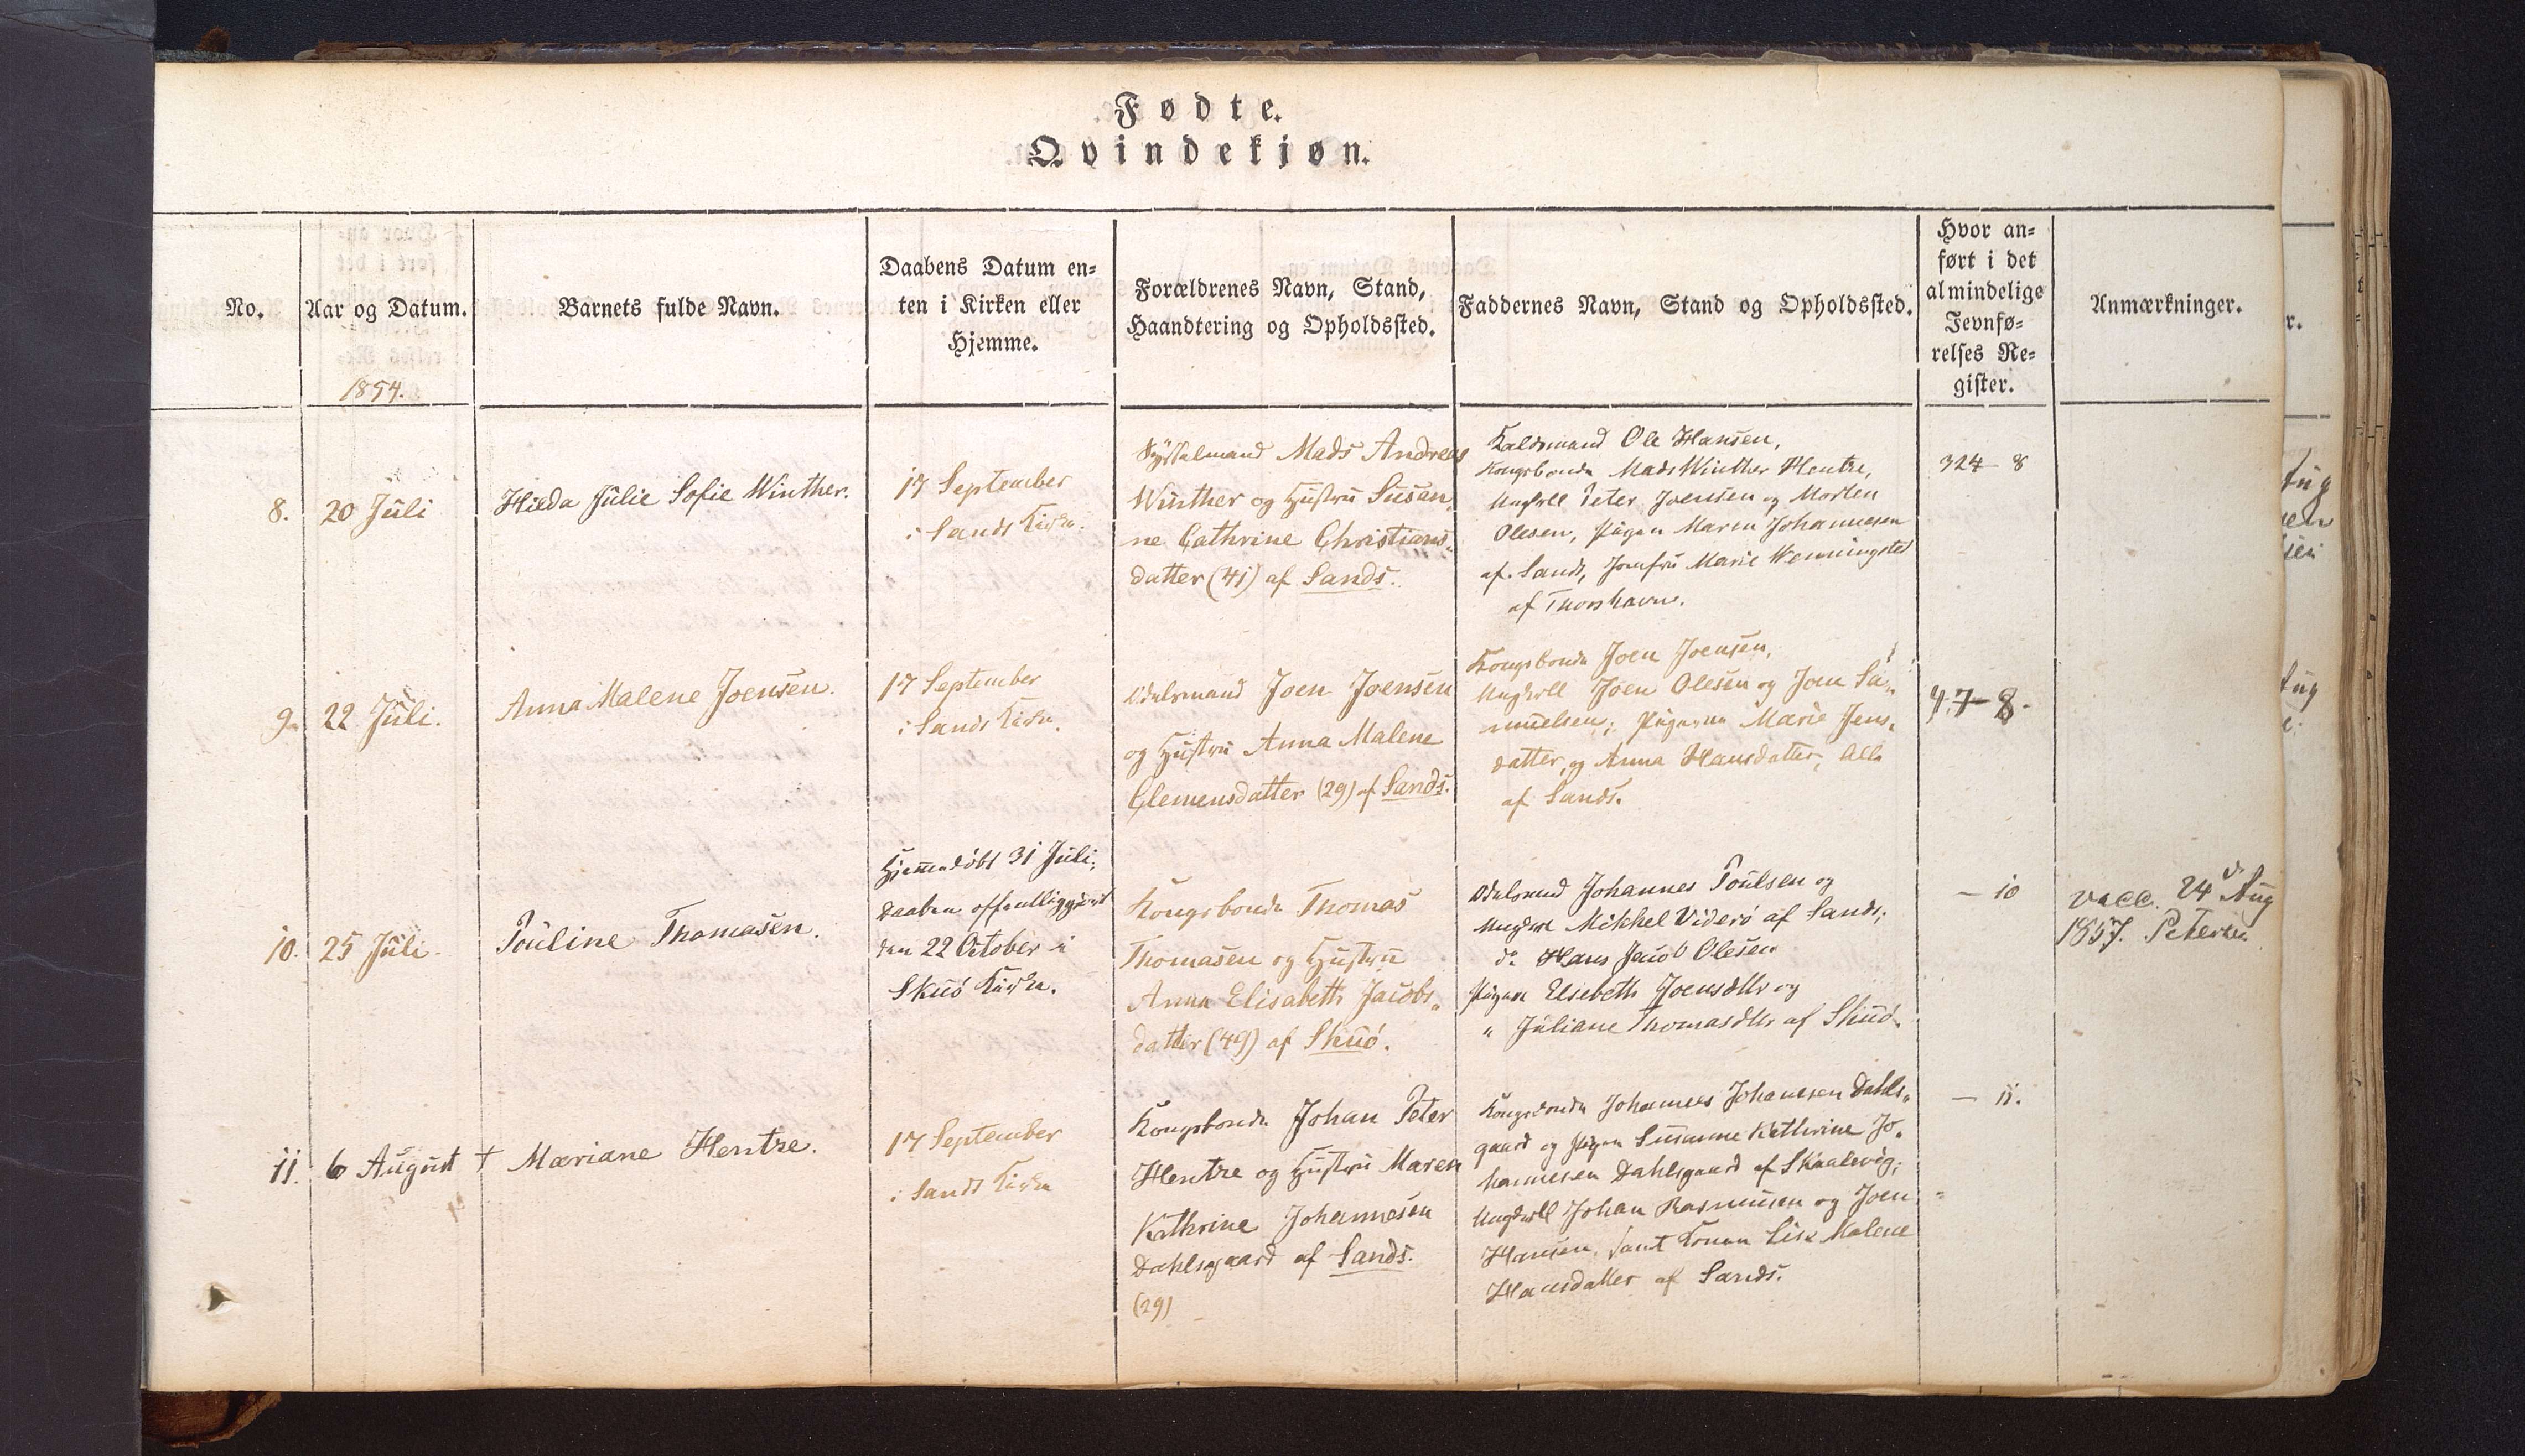 Fødte.
Qvindekjøn.
No.
Aar og Datum.
1854.
Barnets fulde Navn.
Daabens Datum en-
ten i Kirken eller
Hjemme.
Forældrenes Navn, Stand,
Haandtering og Opholdssted.
Faddernes Navn, Stand og Opholdssted.
Hvor an-
ført i det
almindelige
Jevnfø-
relses Re-
gister.
Anmærkninger.
8.
20 Juli
Hilda Julie Sofie Winther.
17 September
i Sands Kirke.
Sysselmand Mads Andreas
Winther og Hustru Susan„
ne Cathrine Christians„
datter (41) af Sands.
Kaldsmand Ole Hansen,
Kongsbonde Mads Winther Hentze,
Ungkarl Peter Joensen og Morten
Olesen, Pigen Maren Johannesen
af Sands, Jomfru Marie Wenningsted
af Thorshavn.
324-8
9.
22 Juli.
Anna Malene Joensen.
17 September
i Sands Kirke.
Odelsmand Joen Joensen
og Hustru Anna Malene
Clemensdatter (29) af Sands.
Kongsbonde Joen Joensen,
Ungkarll Joen Olesen og Joen Sa„
muelsen; Pigerne Marie Jens„
datter, og Anna Hansdatter, Alle
af Sands.
47-8.
10.
25 Juli.
Pouline Thomasen.
Hjemmedöbt 31 Juli;
Daaben offentliggjort
den 22 October i
Skuö Kirke.
Kongsbonde Thomas
Thomasen og Hustru
Anna Elisabeth Jacobs„
datter (49) af Skuö.
Odelsmand Johannes Poulsen og
Ungkarl Mikkel Viderö af Sands;
do Hans Jacob Olesen
Pigerne Elsebeth Joensdttr og
" Juliane Thomasdttr af Skuö.
- 10
vacc. 24 Aug
1857. Petersen
11.
6 August
† Mariane Hentze.
17 September
i Sands Kirke
Kongsbonde Johan Peter
Hentze og Hustru Maren
Kathrine Johannesen
Dahlsgaard af Sands.
(29)
Kongsbonde Johannes Johannesen Dahls„
gaard og Pigen Susanne Kathrine Jo„
hannesen Dahlsgaard af Skaalevig;
Ungkarll Johan Rasmussen og Joen
Hansen, samt Konen Lise Malene
Hansdatter af Sands.
- 11.